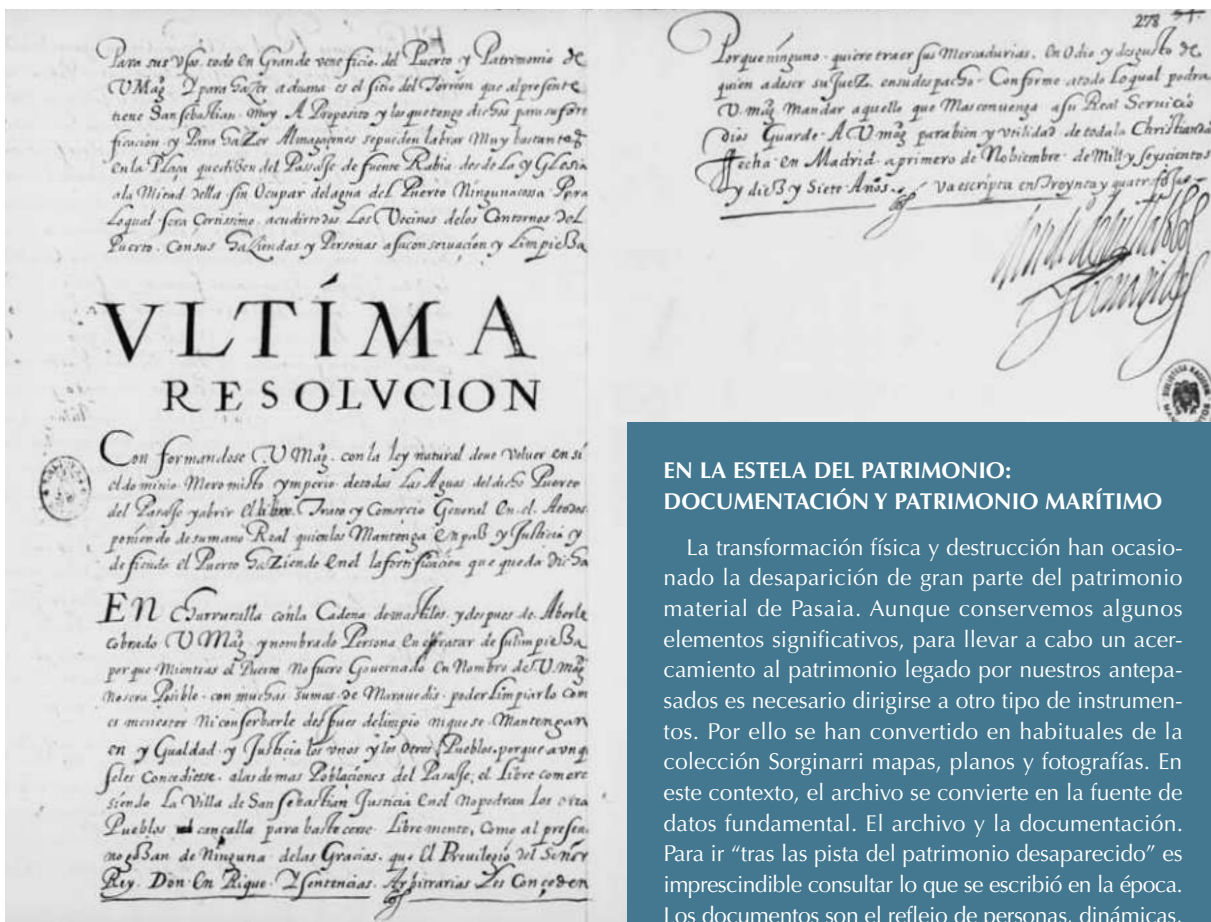 Para sus Vsos, todo en Grande veneficio del Puerto y Patrimonio de
V Mag. Y para hazer aduana es el sitio del Torreon que al presente
tiene San sebastian muy A Proposito y los que tengo dichos para su forti
ficacion y Para haZer Almagaçenes se pueden labrar Muy bastantes
en la Plaça que diçen del Passaje de fuente Rabia desde la y GLesia
ala Mitad della sin Ocupar del agua del Puerto Ninguna cosa Para
Loqual sera Certissimo acudir todos Los Vecinos delos Contornos Del
Puerto Con sus haZiendas y Personas a su conseruacion y Limpieza
VLTÍMA
RESOLVCION
Con formandose V Mag. con la ley natural deue Voluer en sí
el dominio Mero misto y mperio de todas Las Aguas del dicho Puerto
del Pasaje y abrir el libre Trato y Comercio General En el Atodos
poniendo de su mano Real quien los Mantenga en paz y Justicia y
defienda el Puerto haZiendo en el la fortificacion que queda dicha
EN Churrutalla con la Cadena de mastiles y despues de Aberle
cobrado V Mag. y nombrado Persona En tratar de su limpieza
por que Mientras el Puerto No fuere Gouernado En Nombre de V. mag
No sera Posible con muchas sumas de Marauedis poder Limpiarlo Com
es menester Ni conserbarle despues de limpio ni que se Mantengan
en y Gualdad y Justicia los vnos y los otros Pueblos, porque a vnq
seles Concediesse alas demas Poblaciones del Pasaje, el Libre comerc
siendo La Villa de San sebastian Justicia En el No podran Los otro
Pueblos cancalla para bastecerse Libremente, Como al presen
no goZan de Ninguna delas Gracias que El Preuilegio del Señor
Rey Don En Rique Y sentencias Arbitrarias Les Conceden
278
Porque ninguno quiere traer sus Mercadurias En Odio y desgusto de
quien a de ser su JueZ en su despacho Conforme a todo Loqual podra
V. mag Mandar aquello que Mas conuenga a su Real Seruicio
Dios Guarde A V mag para bien y vtilidad de toda la Christiandad
fecha en Madrid a primero de Nobiembre de Mill y seyscientos
y dieZ y Siete Años Va escripta en Treynta y quatro fojas
EN LA ESTELA DEL PATRIMONIO:
DOCUMENTACIÓN Y PATRIMONIO MARÍTIMO
La transformación física y destrucción han ocasio-
nado la desaparición de gran parte del patrimonio
material de Pasaia. Aunque conservemos algunos
elementos significativos, para llevar a cabo un acer-
camiento al patrimonio legado por nuestros antepa-
sados es necesario dirigirse a otro tipo de instrumen-
tos. Por ello se han convertido en habituales de la
colección Sorginarri mapas, planos y fotografías. En
este contexto, el archivo se convierte en la fuente de
datos fundamental. El archivo y la documentación.
Para ir “tras las pista del patrimonio desaparecido” es
imprescindible consultar lo que se escribió en la época.
Los documentos son el reflejo de personas, dinámicas,